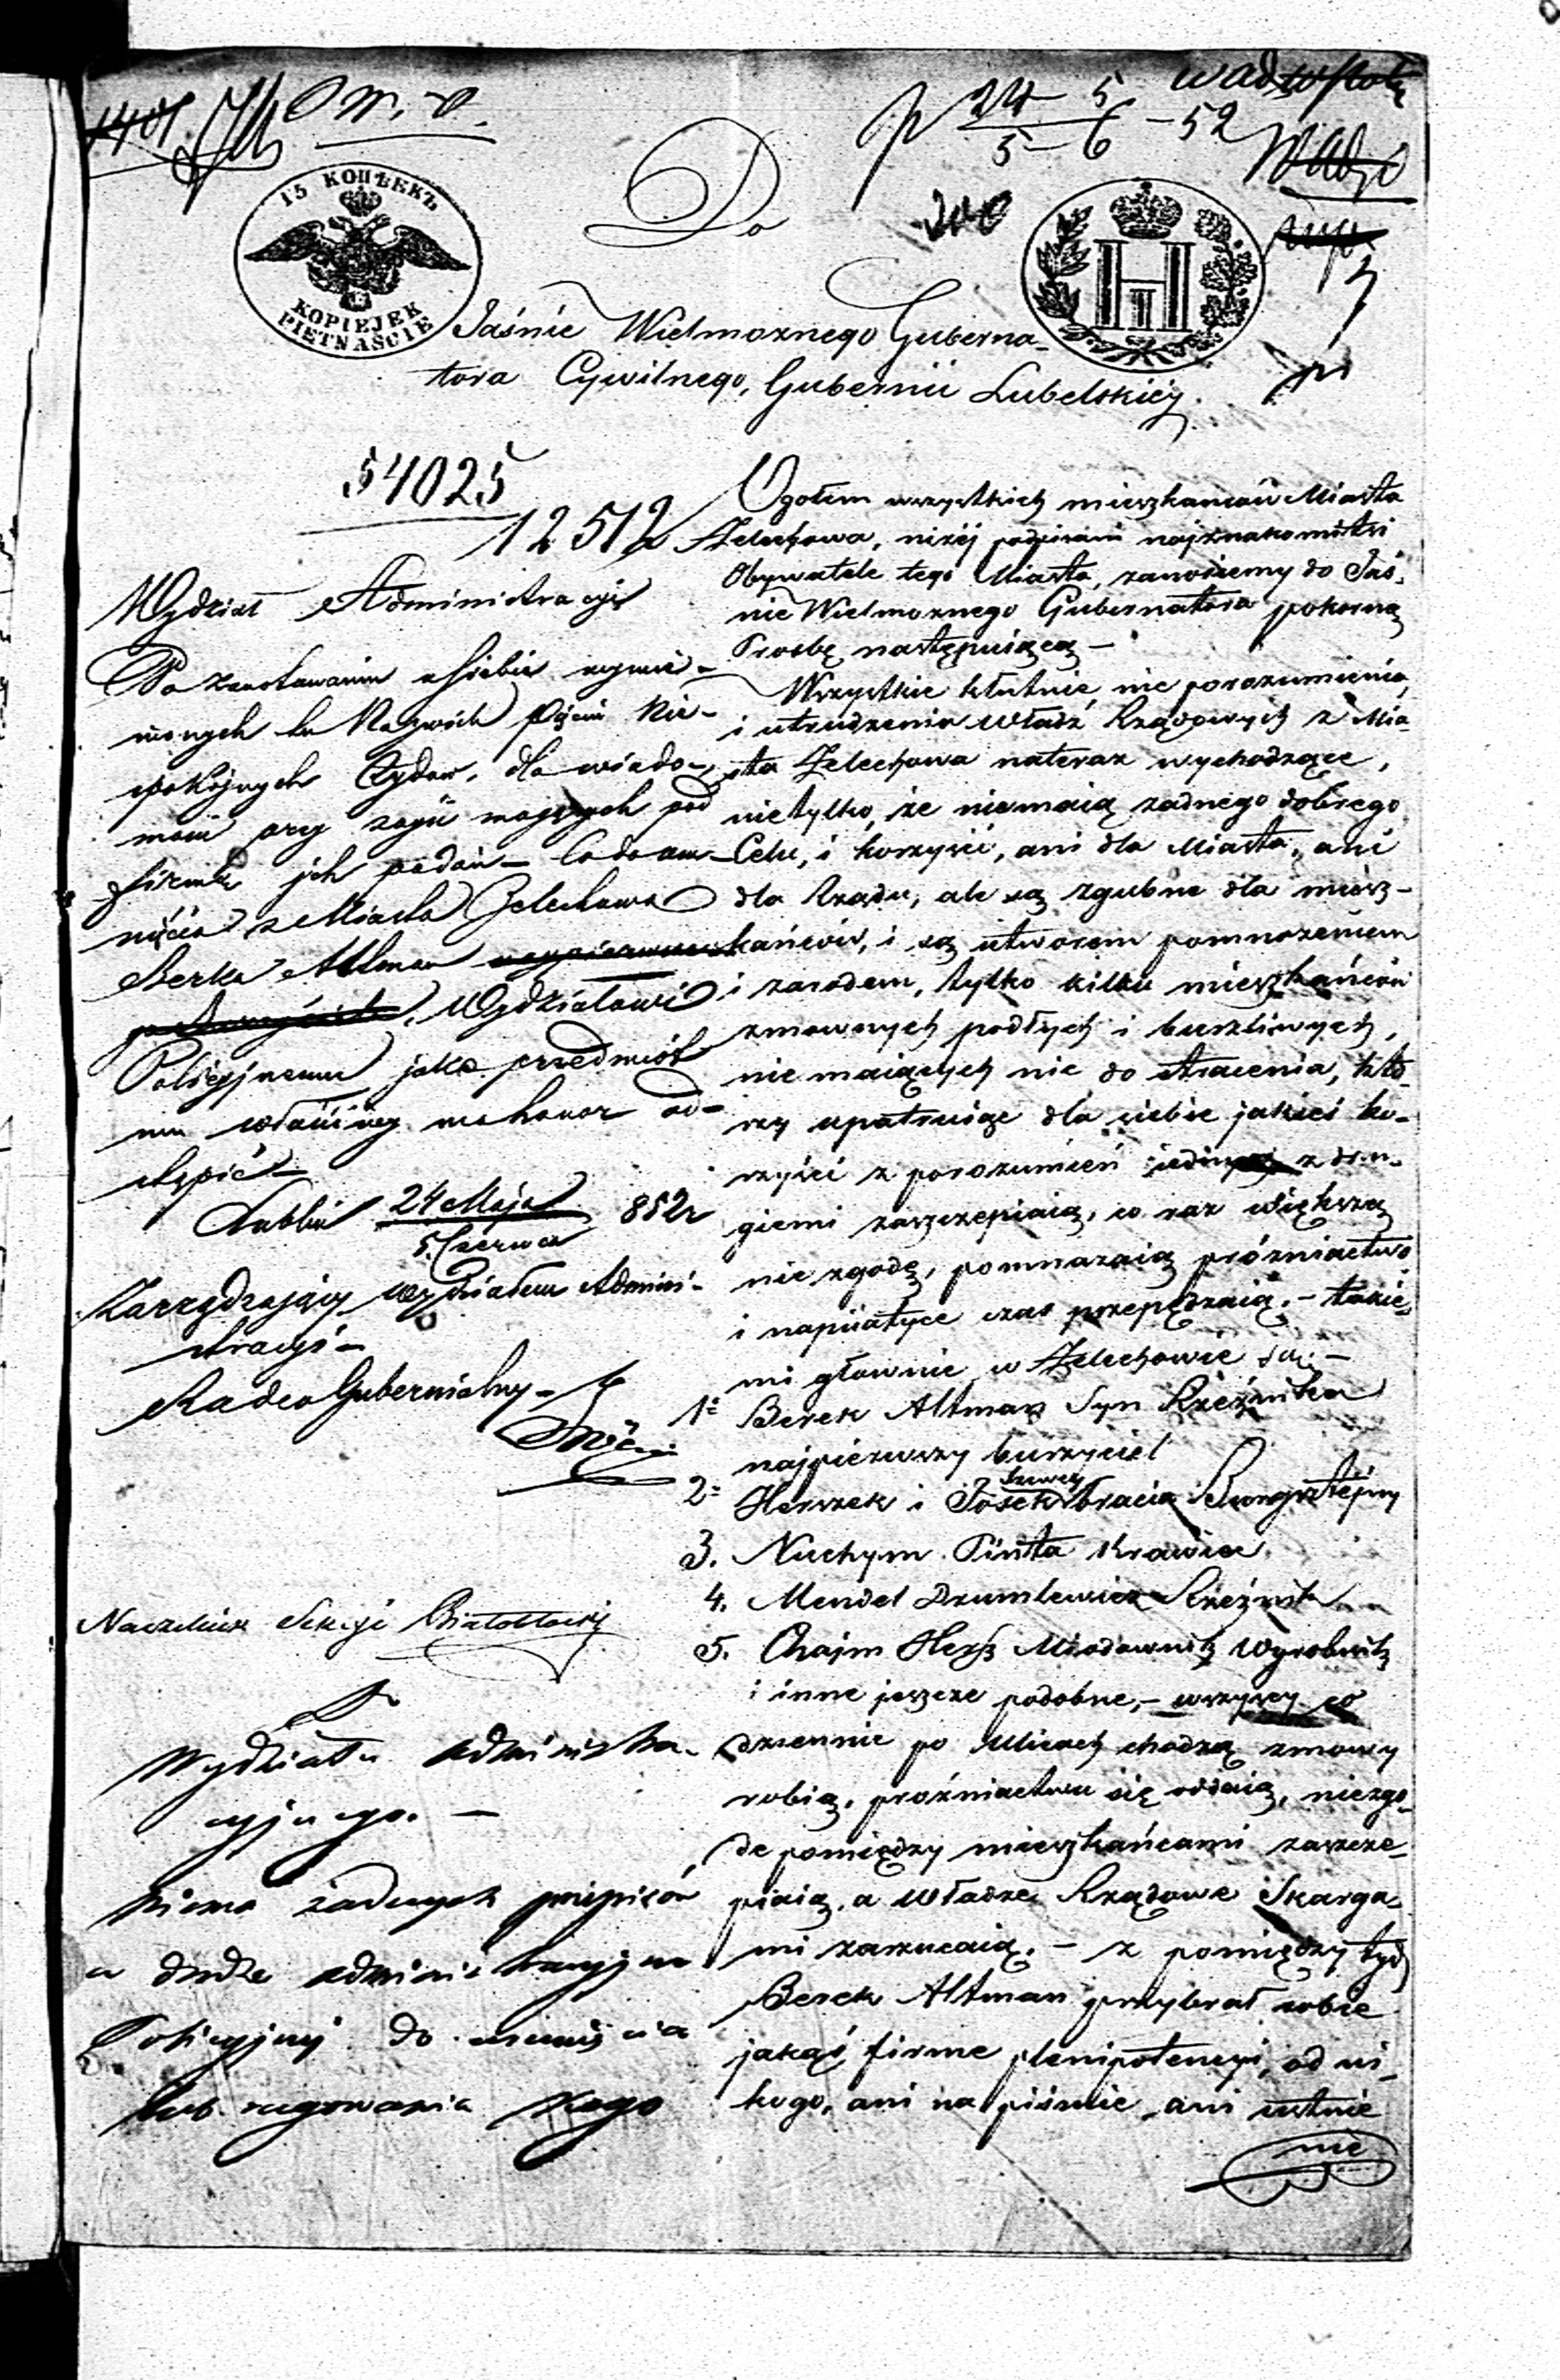 1401
p 24/5 – 5/6 – 52
15 КОПѢЕКЪ
KOPIEJEK
PIĘTNAŚCIE
Do
Jaśnie Wielmożnego Guberna-
tora Cywilnego, Gubernii Lubelskiéy.
54025
12512
Wydział Administracyi
Po zanotowaniu u siebie wymie-
nionych tu Naczwóch Nie-
spokojnych Żydów, dla wiado-
mości przy zajść mogących pod
ich podań –
z Miasta Żelechowa
Berka Altman
Wydziałowi
Policyjnemu jako przedmiot
mu właściwy od-
stąpić –
Lublin 24 Maja / 5 Czerwca 852 r
Zarządzający Wydziałem Admini-
stracyi –
Radca Gubernialny –
Naczelnik Sekcji Białobłocki
Ogołem wszystkich mieszkańców Miasta
Żelechowa, niżéj podpisani najznakomitsi
Obywatele tego Miasta, zanosiemy do Jaś-
nie Wielmożnego Gubernatora pokorną
Prosbę następuiącą –
Wszystkie kłutnie, nie porozumienia,
i utrudzenia Władz Rządowych z Mia-
sta Żelechowa nateraz wychodzące,
nietylko, że niemaią żadnego dobrego
Celu, i korzyści, ani dla Miasta, ani
dla Rządu, ale są zgubne dla miesz-
kańców, i są utworem pomnożeniem
i zarodem, tylko kilku mieszkańców
zmownych podłych i burzliwych,
nie maiących nic do stracenia, któ-
rzy upatruiąc dla siebie jakieś ko-
rzyści z porozumień jednych z dru-
giemi zaszczepiaią, co raz większą
nie zgodę, pomnażaią próżniactwo
i napiiatyce czas przepędzaią. – takie-
mi głównie w Żelechowie są: –
1: Berek Altman Syn Rzeźnika
najpierwszy burzyciel
2: Herszek i Josek Szewcy bracia
3. Nuchym Pinta Krawiec
4. Mendel Drumlewicz Rzeźnik
5. Chaim Hersz Miodownik Wyrobnik
i inne jeszcze podobne, – wszyscy co
dziennie po Ulicach chodzą zmowy
robią, próżniactwu się oddaią, niezgo-
de pomiędzy mieszkańcami zaszcze-
piaią, a Władze Rządowe Skarga-
mi zarzucaią. – z pomiędzy tych
Berek Altman przybrał sobie
jakąś firme plenipotencyi, od ni-
kogo, ani na piśmie, ani ustnie
nie
Do
Wydziału administra-
cyjnego. –
Niema żadnych przepisów
w drodze administracyjno
Policyjnej do usunięcia
lub rugowania kogo